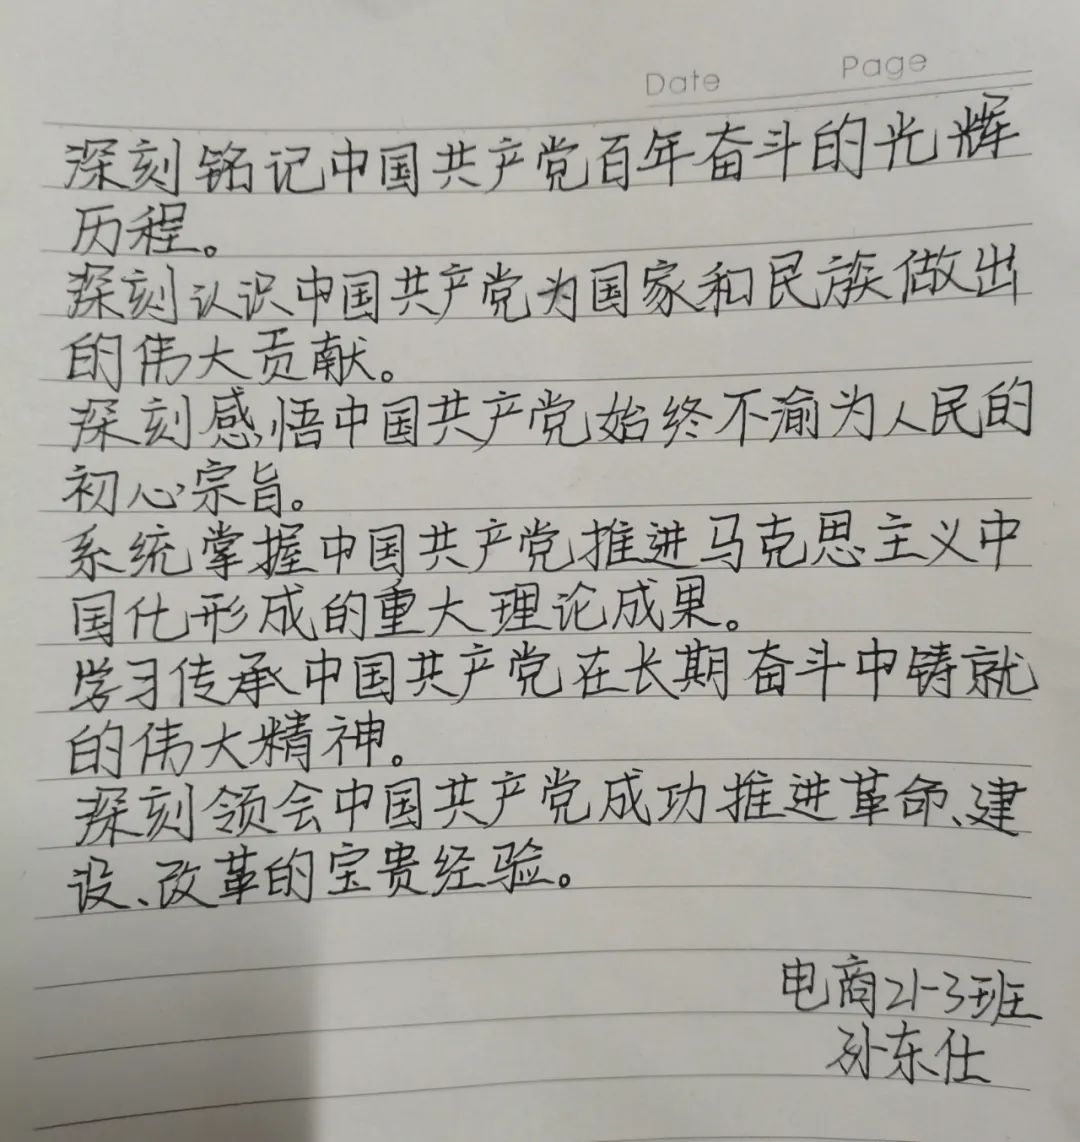 Date Page
深刻铭记中国共产党百年奋斗的光辉
历程。
深刻认识中国共产党为国家和民族做出
的伟大贡献。
深刻感悟中国共产党始终不渝为人民的
初心宗旨。
系统掌握中国共产党推进马克思主义中
国化形成的重大理论成果。
学习传承中国共产党在长期奋斗中铸就
的伟大精神。
深刻领会中国共产党成功推进革命、建
设、改革的宝贵经验。
电商21-3班
孙东仕